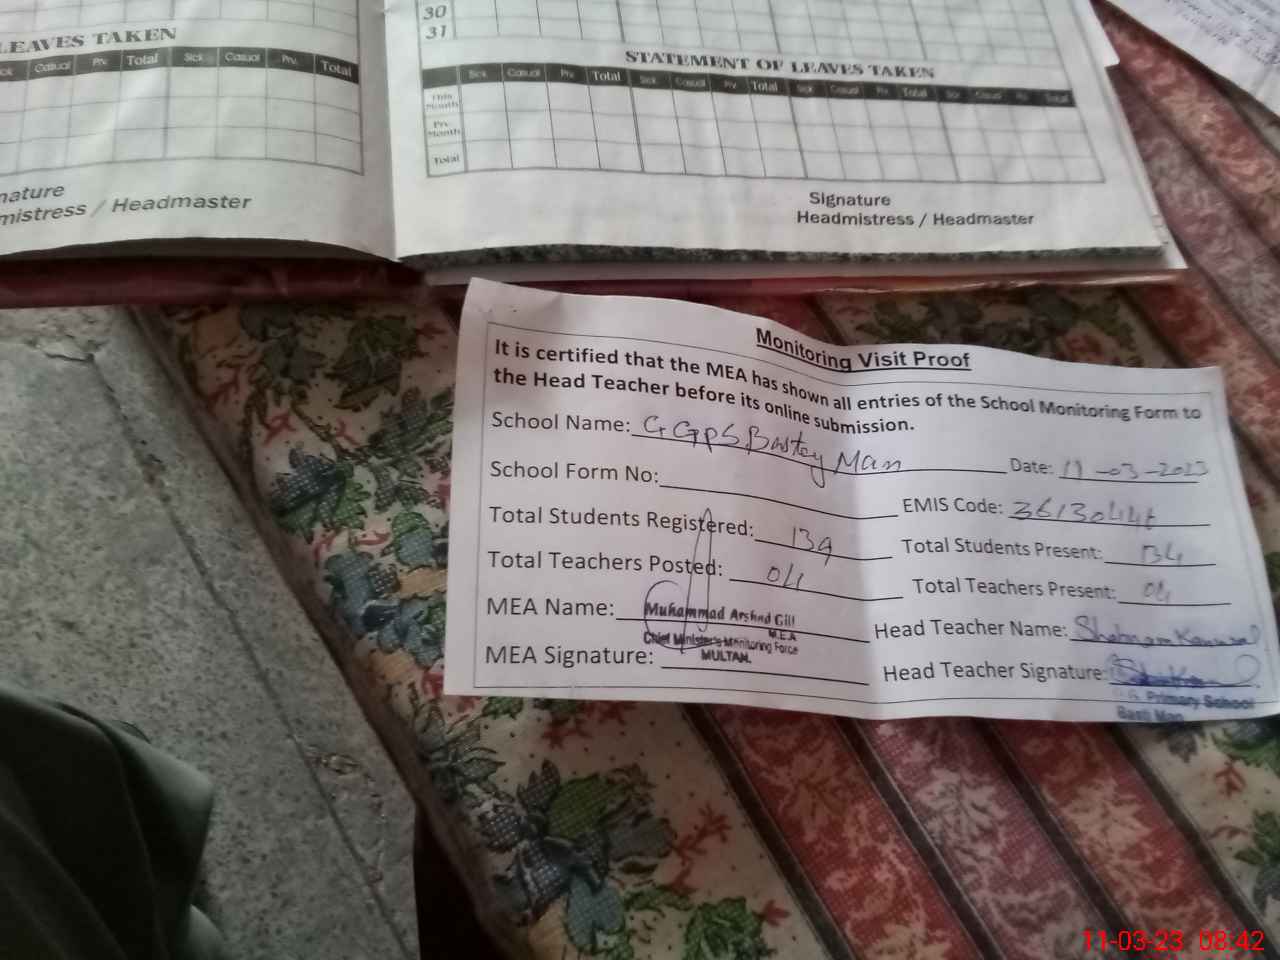 30
31
LEAVES TAKEN
Casual Prv. Total Sick Casual Prv. Total
nature
mistress / Headmaster
STATEMENT OF LEAVES TAKEN
Sick Casual Prv. Total Sick Casual Prv. Total Sick Casual Prv. Total Sick Casual Prv. Total
This Month
Prv. Month
Total
Signature
Headmistress / Headmaster
Monitoring Visit Proof
It is certified that the MEA has shown all entries of the School Monitoring Form to
the Head Teacher before its online submission.
School Name: GGPS Bastey Man Date: 11-03-2023
School Form No: EMIS Code:
Total Students Registered: 139 Total Students Present: 134
Total Teachers Posted: 04 Total Teachers Present: 04
MEA Name: Muhammad Arshad Gill Head Teacher Name: Shabnam
M.E.A
Chief Minister's Monitoring Force
MULTAN.
MEA Signature: Head Teacher Signature:
Primary School
Basti Man
11-03-23 08:42